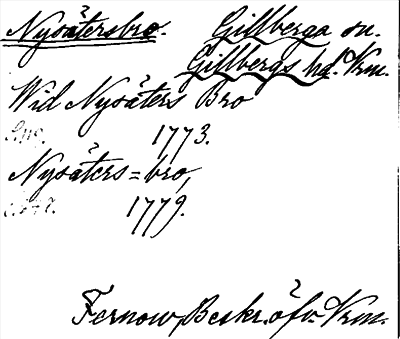 Nysätersbro. Gillberga sn.
Gillbergs hd. Vrm.
Wid Nysäters Bro
1773.
Nysäters=bro,
1779.
Fernow, Beskr. öfv. Vrm.